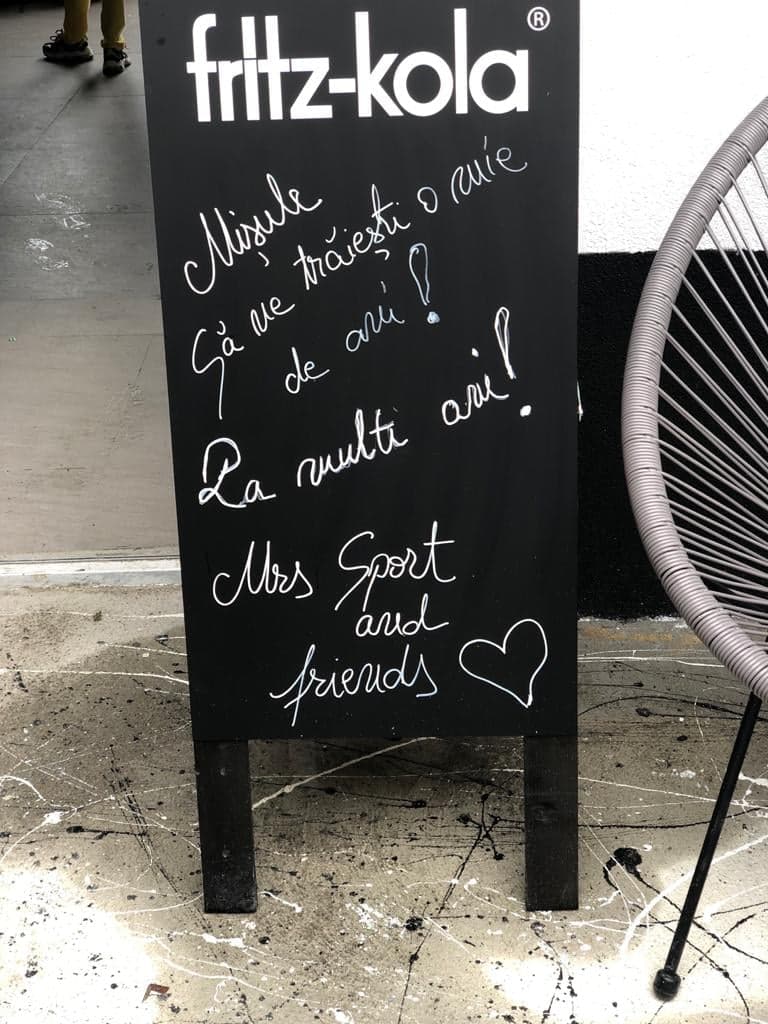 fritz-kola®
Mișule
Să ne trăiești o mie
de ani!
La multi ani!
Mrs Sport
and
friends